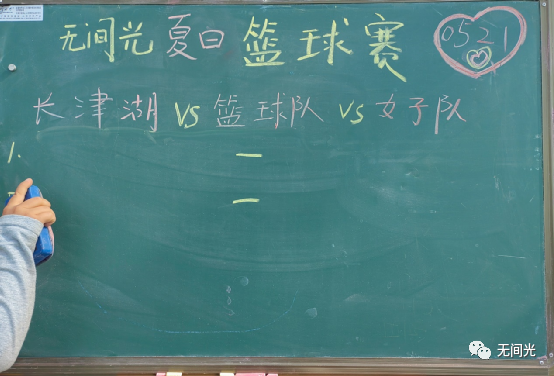 无间光 夏日 篮球赛
0521
长津湖 VS 篮球队 VS 女子队
1. —
—
无间光